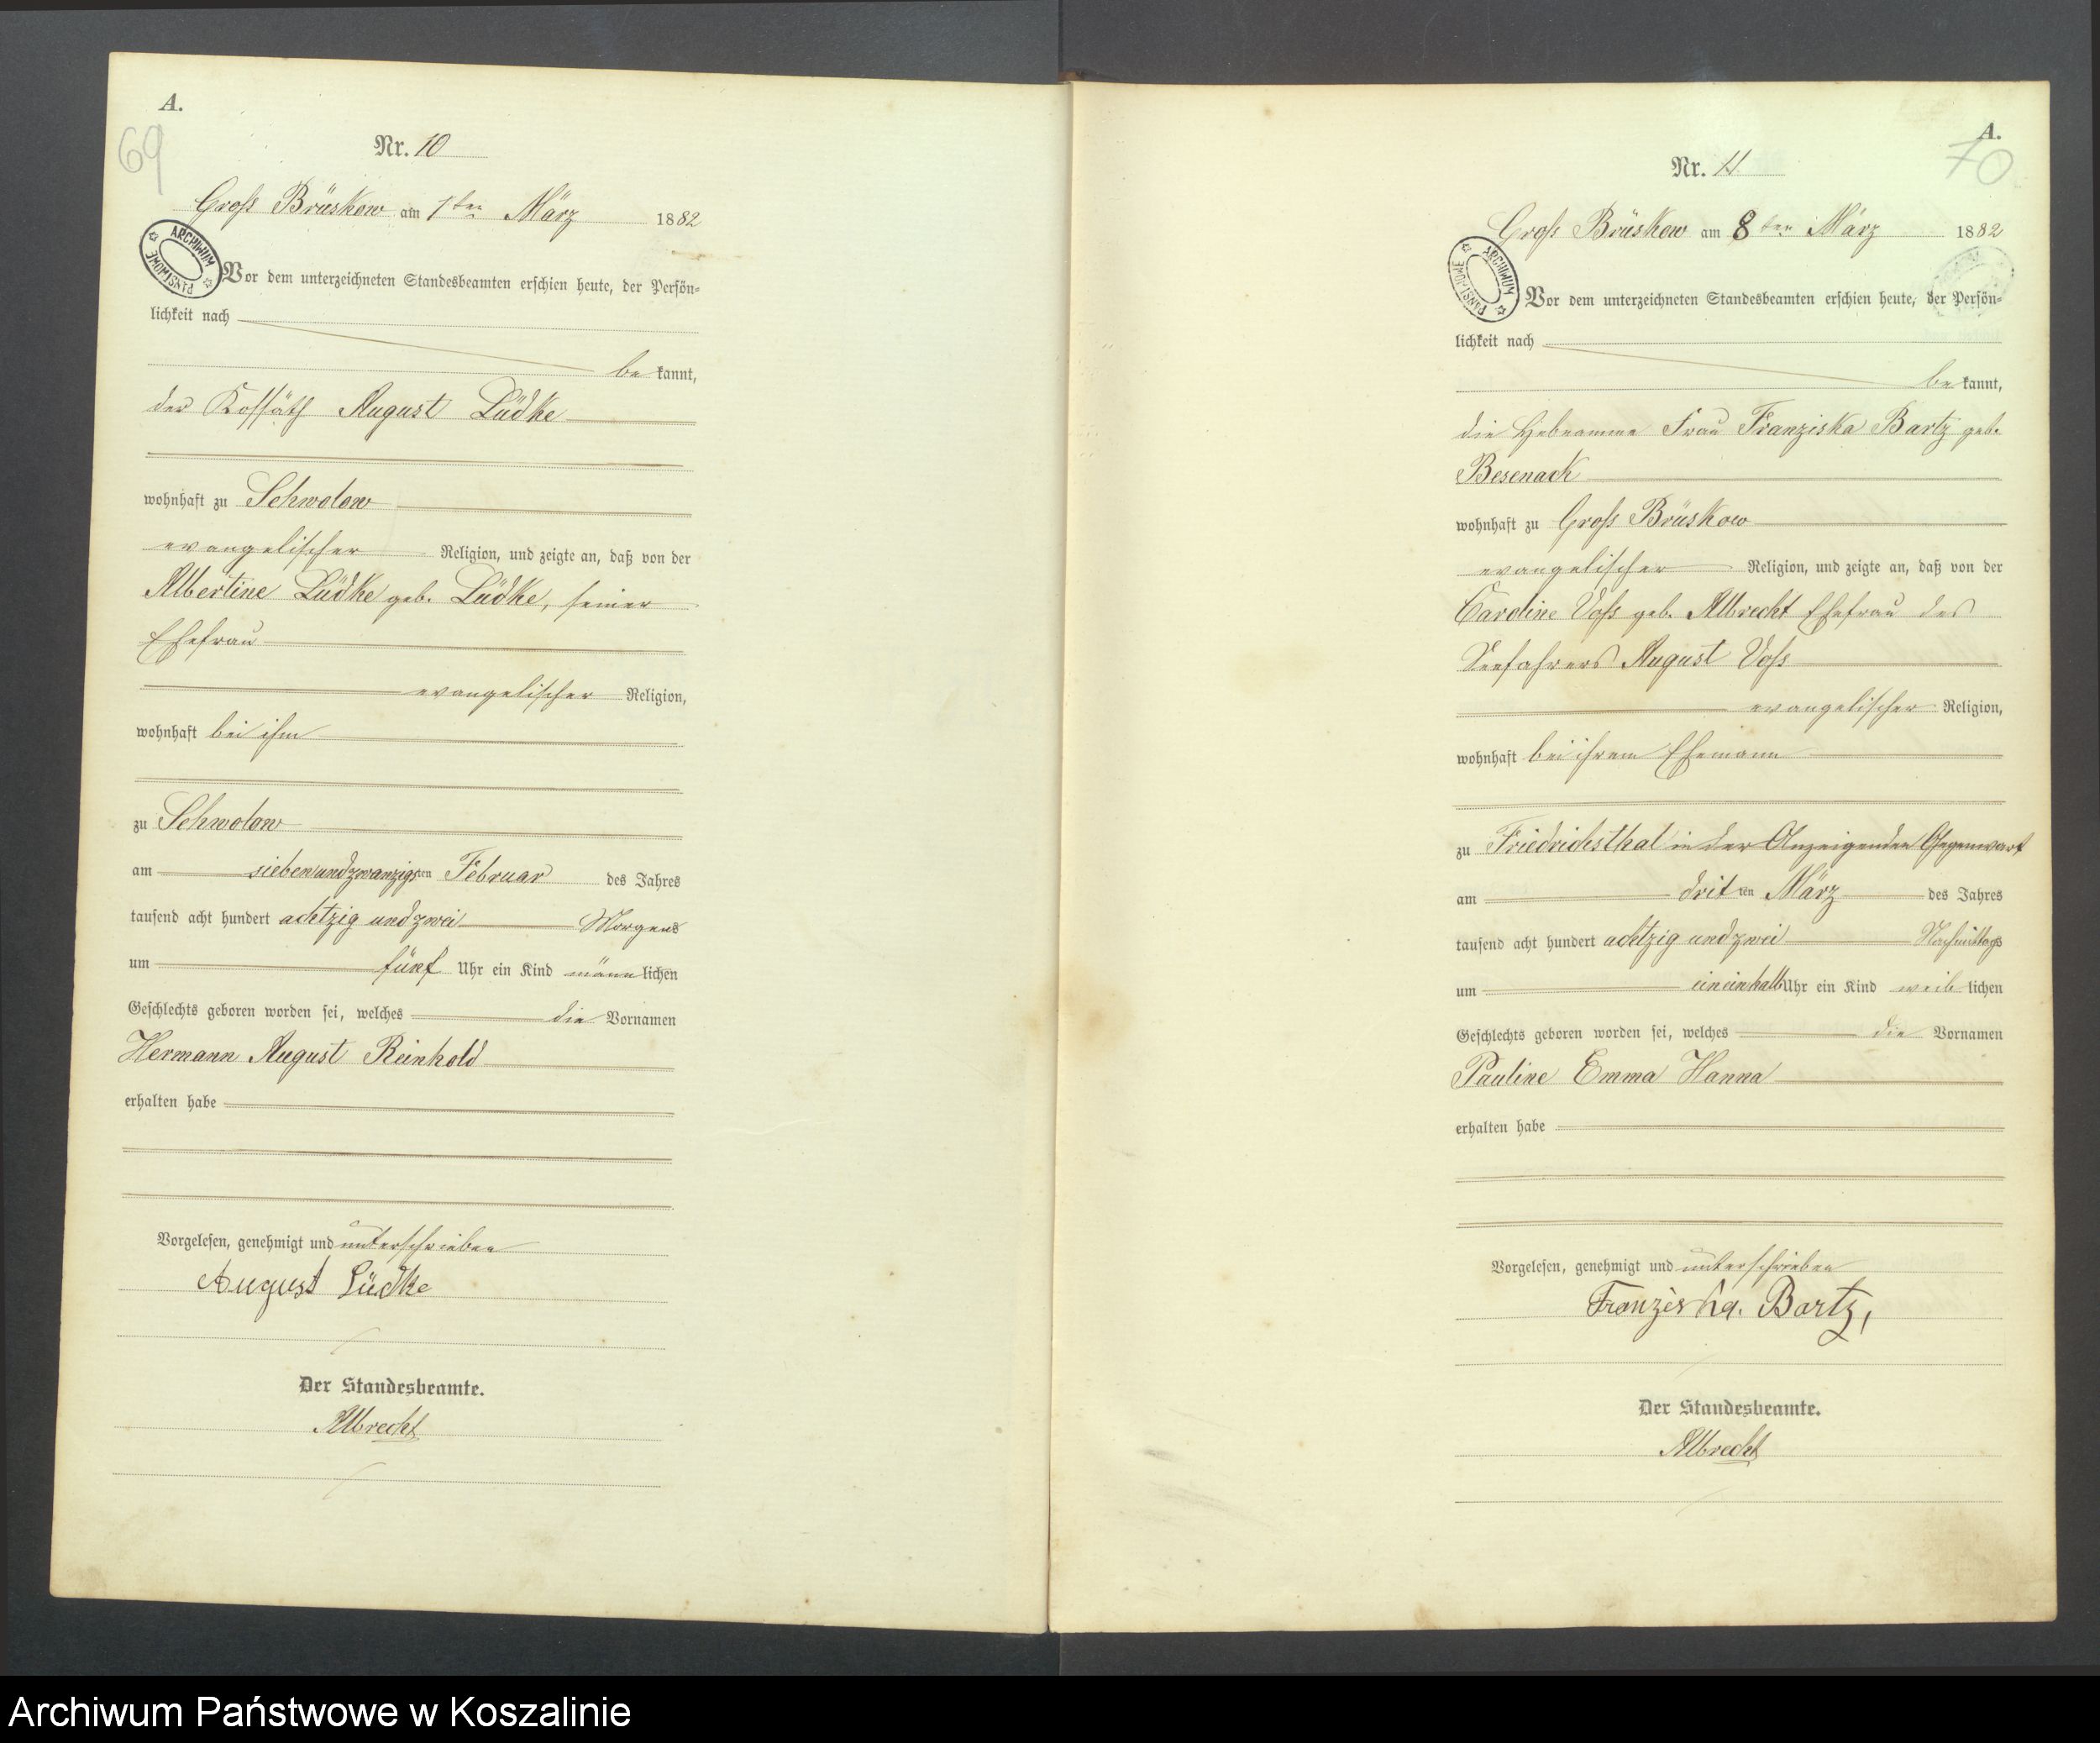 A.
69
Nr. 10
Groß Brüskow am 1ten März 1882
ARCHIWUM PAŃSTWOWE
Vor dem unterzeichneten Standesbeamten erschien heute, der Persön-
lichkeit nach
be kannt,
der Kossäth August Lüdke
wohnhaft zu Schwolow
evangelischer Religion, und zeigte an, daß von der
Albertine Lüdke geb. Lüdke, seiner
Ehefrau
evangelischer Religion,
wohnhaft bei ihm
zu Schwolow
am siebenundzwanzigsten Februar des Jahres
tausend acht hundert achtzig und zwei Morgens
um fünf Uhr ein Kind männlichen
Geschlechts geboren worden sei, welches die Vornamen
Hermann August Reinhold
erhalten habe
Vorgelesen, genehmigt und unterschrieben
August Lüdke
Der Standesbeamte.
Albrecht
A.
70
Nr. 11.
Groß Brüskow am 8ten März 1882
ARCHIWUM PAŃSTWOWE
Vor dem unterzeichneten Standesbeamten erschien heute, der Persön-
lichkeit nach
be kannt,
die Hebeamme Frau Franziska Bartz geb.
Besenack
wohnhaft zu Groß Brüskow
evangelischer Religion, und zeigte an, daß von der
Caroline Voß geb. Albrecht Ehefrau des
Seefahrers August Voß
evangelischer Religion,
wohnhaft bei ihrem Ehemann
zu Friedrichsthal in der Anzeigenden Gegenwart
am dritten März des Jahres
tausend acht hundert achtzig und zwei Nachmittags
um eineinhalb Uhr ein Kind weiblichen
Geschlechts geboren worden sei, welches die Vornamen
Pauline Emma Hanna
erhalten habe
Vorgelesen, genehmigt und unterschrieben
Franziska. Bartz,
Der Standesbeamte.
Albrecht
Archiwum Państwowe w Koszalinie